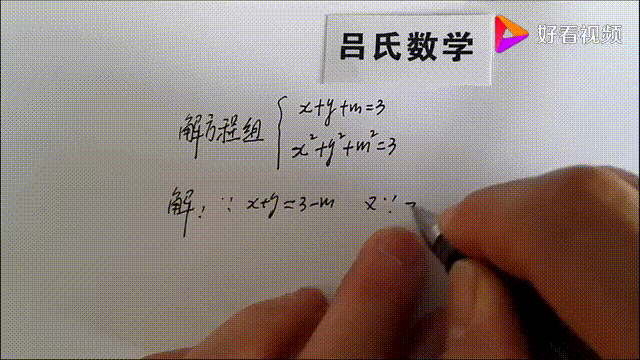 吕氏数学
好看视频
解方程组 { x+y+m=3
x²+y²+m²=3
解: ∵ x+y=3-m 又∵